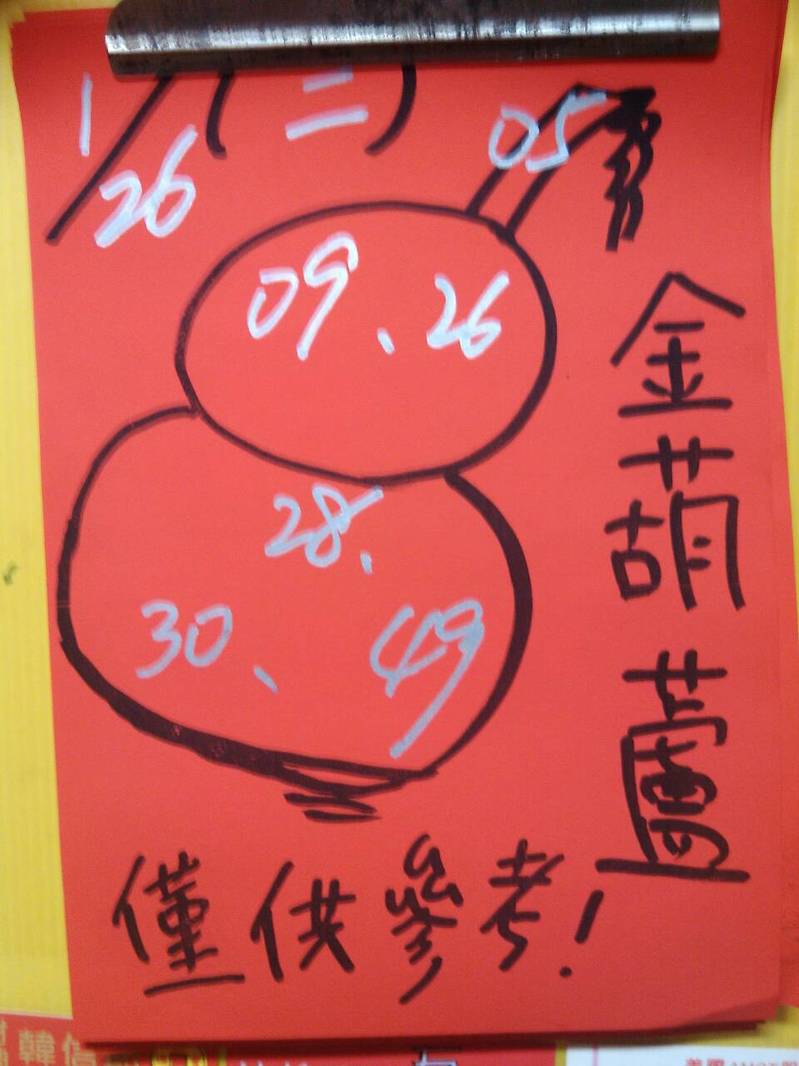 1/26(二)
05
09、26
28、
30、49
金葫蘆
僅供參考!
韓信